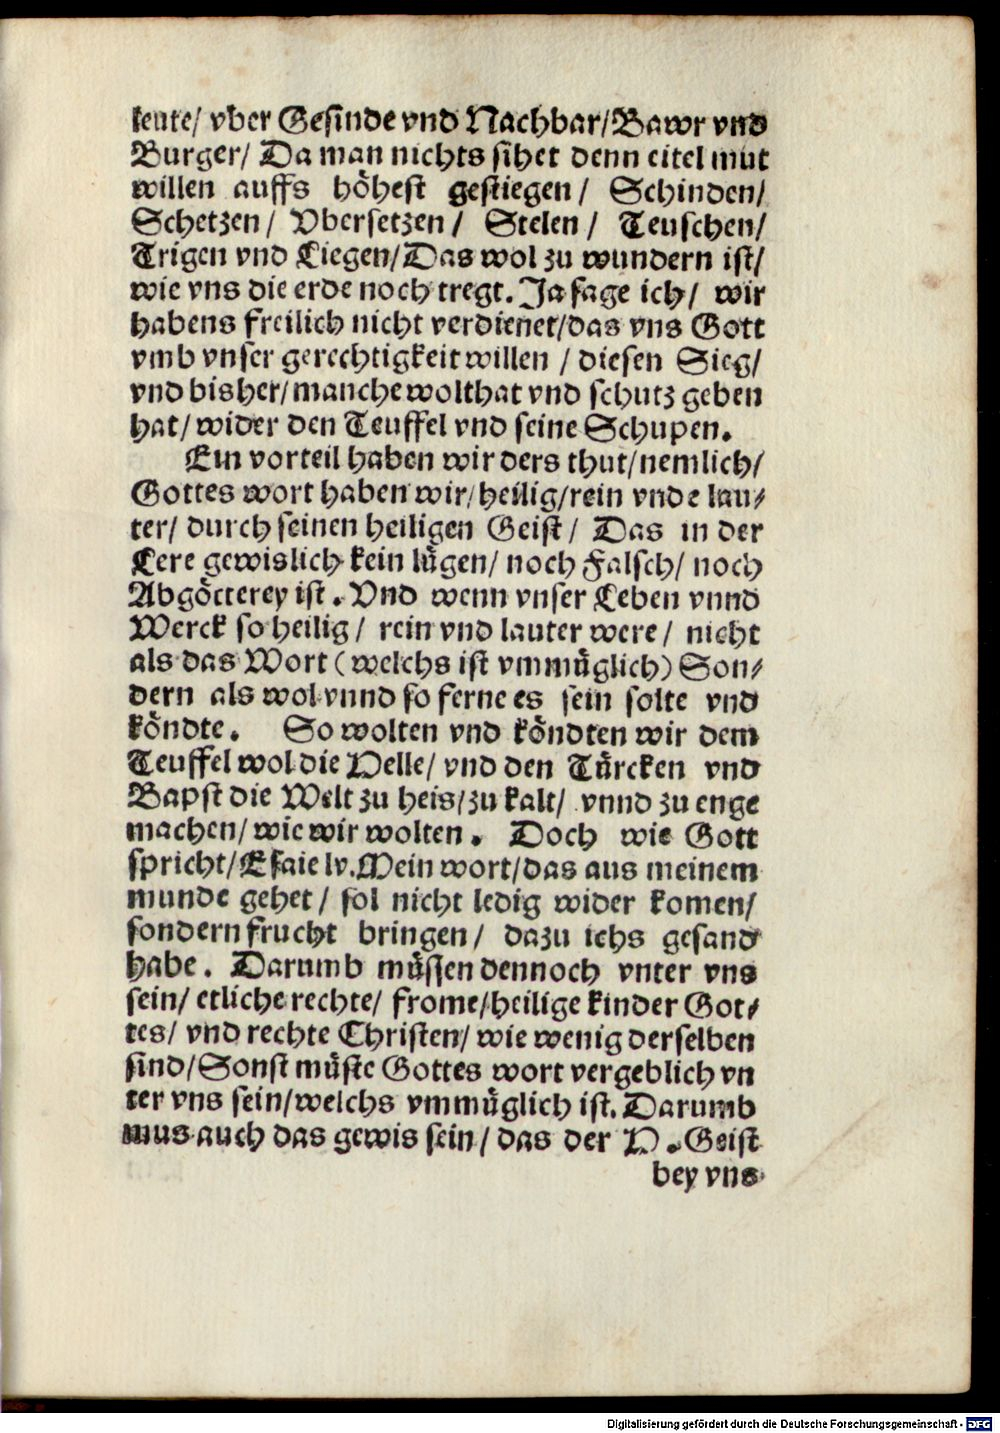 leute/ vber Gesinde vnd Nachbar/Bawr vnd
Burger/ Da man nichts sihet denn eitel mut
willen auffs höhest gestiegen/ Schinden/
Schetzen/ Vbersetzen/ Stelen/ Teuschen/
Trigen vnd Liegen/Das wol zu wundern ist/
wie vns die erde noch tregt. Ja sage ich/ wir
habens freilich nicht verdienet/das vns Gott
vmb vnser gerechtigkeit willen / diesen Sieg/
vnd bisher/manche wolthat vnd schutz geben
hat/ wider den Teuffel vnd seine Schupen.
Ein vorteil haben wir ders thut/nemlich/
Gottes wort haben wir/heilig/rein vnde lau⸗
ter/ durch seinen heiligen Geist/ Das in der
Lere gewislich kein lügen/ noch Falsch/ noch
Abgötterey ist. Vnd wenn vnser Leben vnnd
Werck so heilig/ rein vnd lauter were/ nicht
als das Wort (welchs ist vmmüglich) Son⸗
dern als wol vnnd so ferne es sein solte vnd
köndte. So wolten vnd köndten wir dem
Teuffel wol die Helle/ vnd den Türcken vnd
Bapst die Welt zu heis/zu kalt/ vnnd zu enge
machen/ wie wir wolten. Doch wie Gott
spricht/Esaie lv. Mein wort/das aus meinem
munde gehet/ sol nicht ledig wider komen/
sondern frucht bringen/ dazu ichs gesand
habe. Darumb müssen dennoch vnter vns
sein/ etliche rechte/ frome/heilige kinder Got⸗
tes/ vnd rechte Christen/ wie wenig derselben
sind/Sonst müste Gottes wort vergeblich vn
ter vns sein/welchs vmmüglich ist. Darumb
mus auch das gewis sein/ das der H. Geist
bey vns
Digitalisierung gefördert durch die Deutsche Forschungsgemeinschaft - DFG